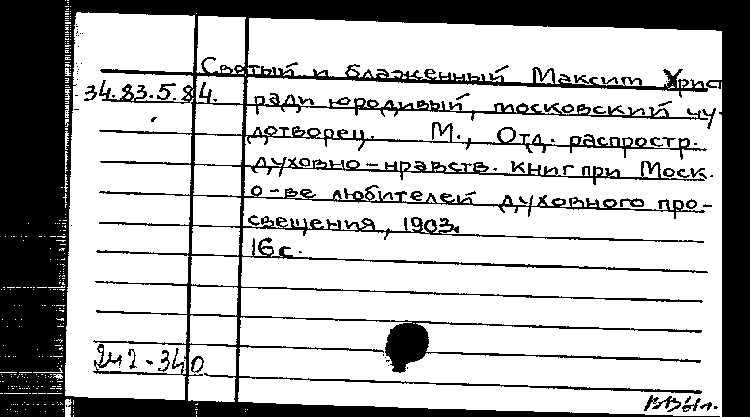 Святый и блаженный Максим Христ
34.83.5.84. ради юродивый, московский чу-
дотворец. М., Отд. распростр.
духовно-нравств. книг при Моск.
о-ве любителей духовного про-
свещения, 1903.
16 с.
242-340